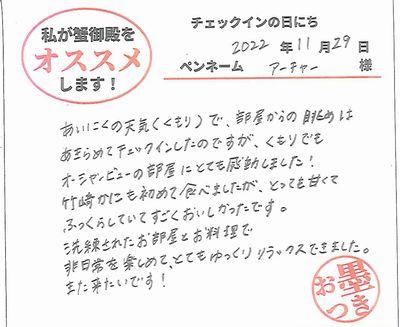 私が蟹御殿を
オススメ
します！
チェックインの日にち
2022 年 11 月 29 日
ペンネーム アーチャー 様
あいにくの天気（くもり）で、部屋からの眺めは
あきらめてチェックインしたのですが、くもりでも
オーシャンビューの部屋にとても感動しました！
竹崎かにも初めて食べましたが、とっても甘くて
ふっくらしていてすごくおいしかったです。
洗練されたお部屋とお料理で
非日常を楽しめて、とてもゆっくりリラックスできました。
また来たいです！
お墨つき